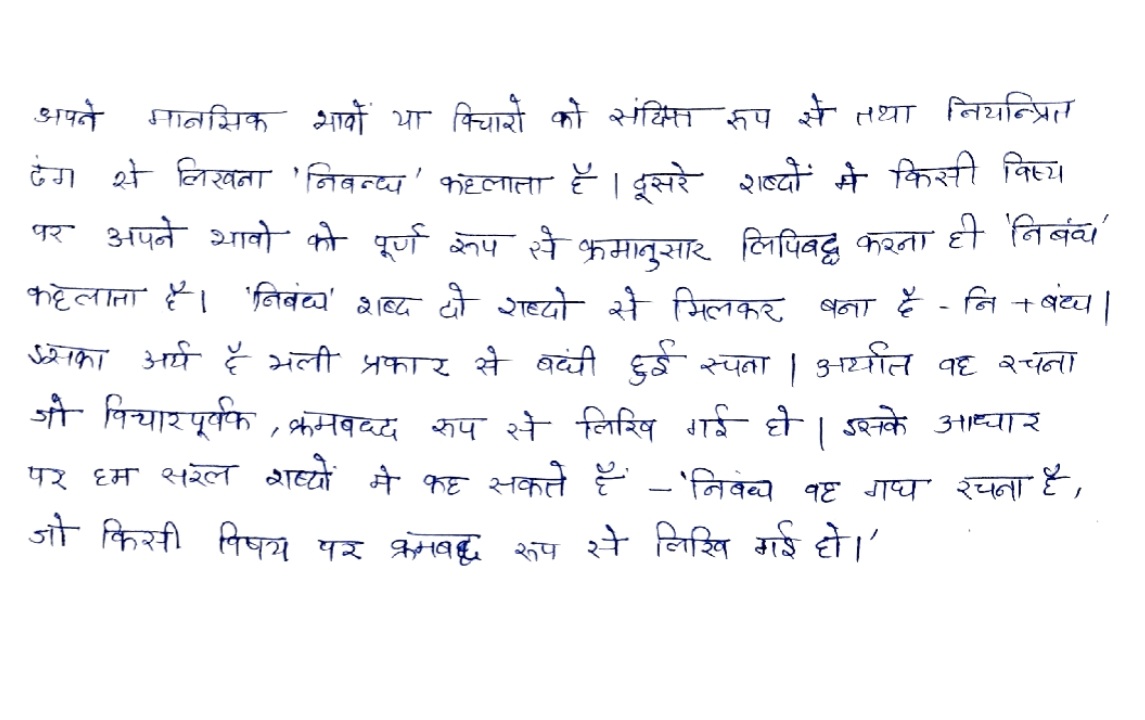 अपने मानसिक भावों या विचारों को संक्षिप्त रूप से तथा नियन्त्रित
ढंग से लिखना 'निबन्ध' कहलाता है। दूसरे शब्दों में किसी विषय
पर अपने भावो को पूर्ण रूप से क्रमानुसार लिपिबद्ध करना ही 'निबंध'
कहेलाता है। 'निबंध' शब्द दो शब्दो से मिलकर बना है - नि + बंध।
इसका अर्थ है भली प्रकार से बधी हुई रचना। अर्थात वह रचना
जो विचारपूर्वक, क्रमबध्द रूप से लिखि गई हो। इसके आधार
पर हम सरल शब्दों में कह सकते हैं – 'निबंध वह गघ रचना है,
जो किसी विषय पर क्रमबद्ध रूप से लिखि गई हो।'